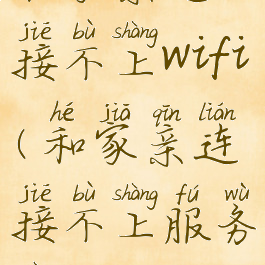 jiē bù shàng
接不上wifi
hé jiā qīn lián
(和家亲连
jiē bù shàng fú wù
接不上服务